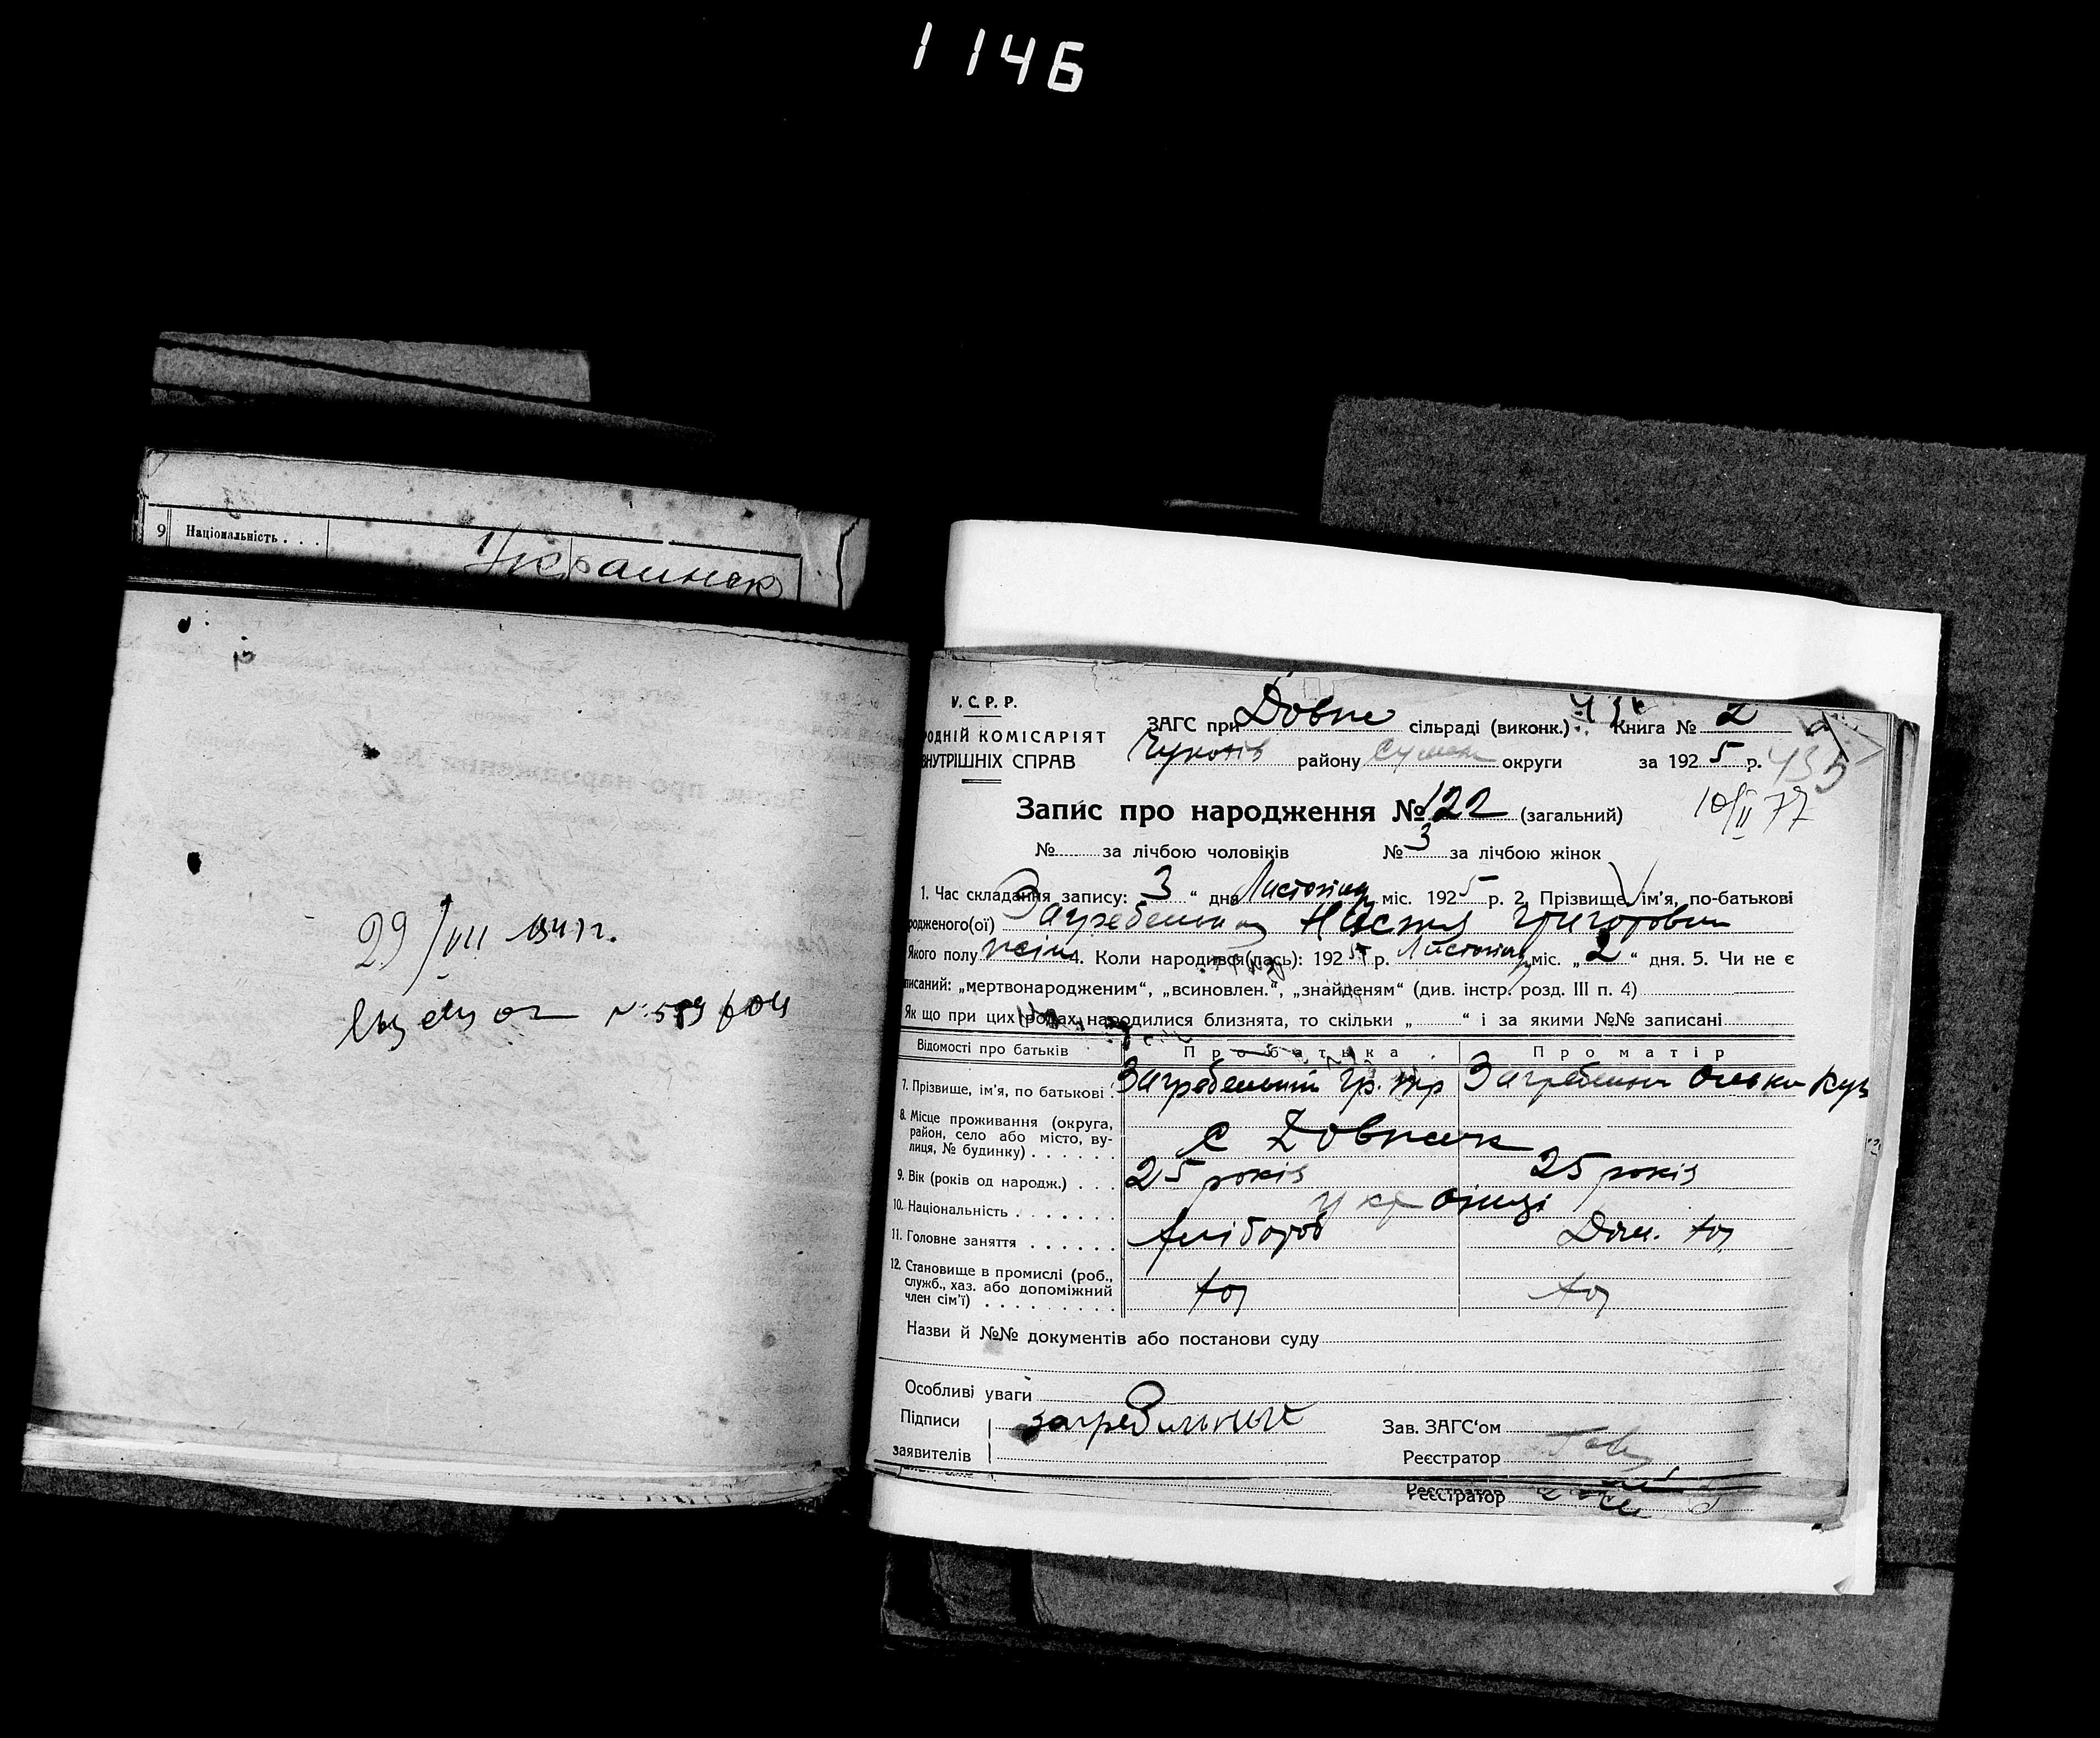 1146
9 Національність . . . Украинск
29/VII 1947 г.
У.С.Р.Р.
ОДНІЙ КОМІСАРІЯТ
ВНУТРІШНІХ СПРАВ
ЗАГС при Довж сільраді (виконк.) Книга № 2
району Сумск округи за 1925 р. 435
Запис про народження № 122 (загальний) 10/II 77
№ за лічбою чоловіків № 3 за лічбою жінок
1. Час складання запису: 3 “ дня Листопад міс. 1925 р. 2. Прізвище, ім’я, по-батькові
родженого(ої) Загребельна Настя Григоровна
Якого полу жін 4. Коли народився(лась): 1925 р. Листопад міс. „ 2 “ дня. 5. Чи не є
писаний: „мертвонародженим“, „всиновлен.“, „знайденям“ (див. інстр. розд. III п. 4)
Як що при цих родах народилися близнята, то скільки „ “ і за якими №№ записані
Відомості про батьків Про батька Про матір
7. Прізвище, ім’я, по батькові Загребельний Гр.
8. Місце проживання (округа, район, село або місто, вулиця, № будинку) с
9. Вік (років од народж.) 25 років 25 років
10. Національність українці
11. Головне заняття Хлібороб Дом. хоз
12. Становище в промислі (роб., служб., хаз. або допоміжний член сім’ї) хоз хоз
Назви й №№ документів або постанови суду
Особливі уваги
Підписи Загребельний Зав. ЗАГС‘ом
заявителів Реєстратор
Реєстратор